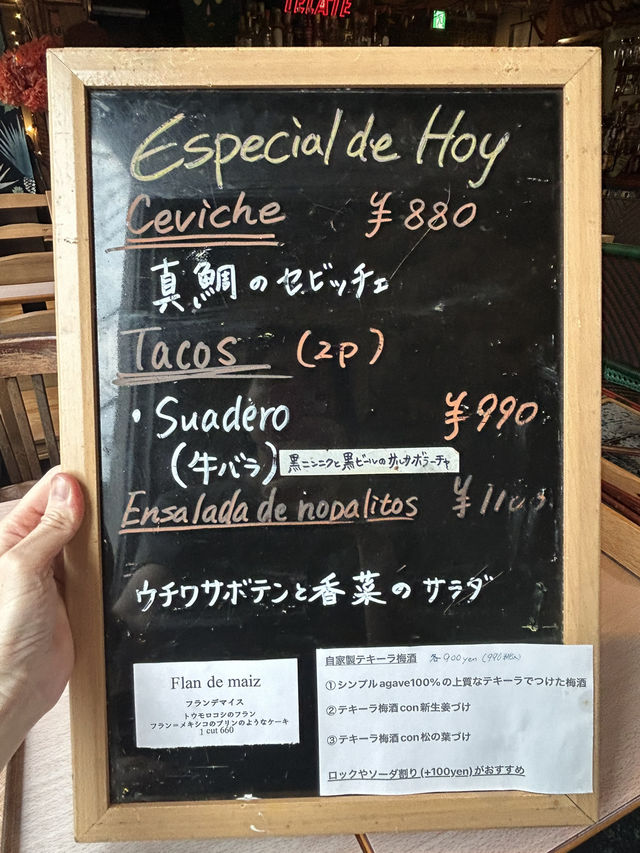 Especial de Hoy
Ceviche ¥880
真鯛のセビッチェ
Tacos (2P)
・Suadero ¥990
(牛バラ) 黒ニンニクと黒ビールのサルサボラーチャ
Ensalada de nopalitos
ウチワサボテンと香菜のサラダ
Flan de maiz
フランデマイス
トウモロコシのフラン
フラン=メキシコのプリンのようなケーキ
1 cut 660
自家製テキーラ梅酒 各900yen
①シンプルagave100%の上質なテキーラでつけた梅酒
②テキーラ梅酒con新生姜づけ
③テキーラ梅酒con松の葉づけ
ロックやソーダ割り(+100yen)がおすすめ